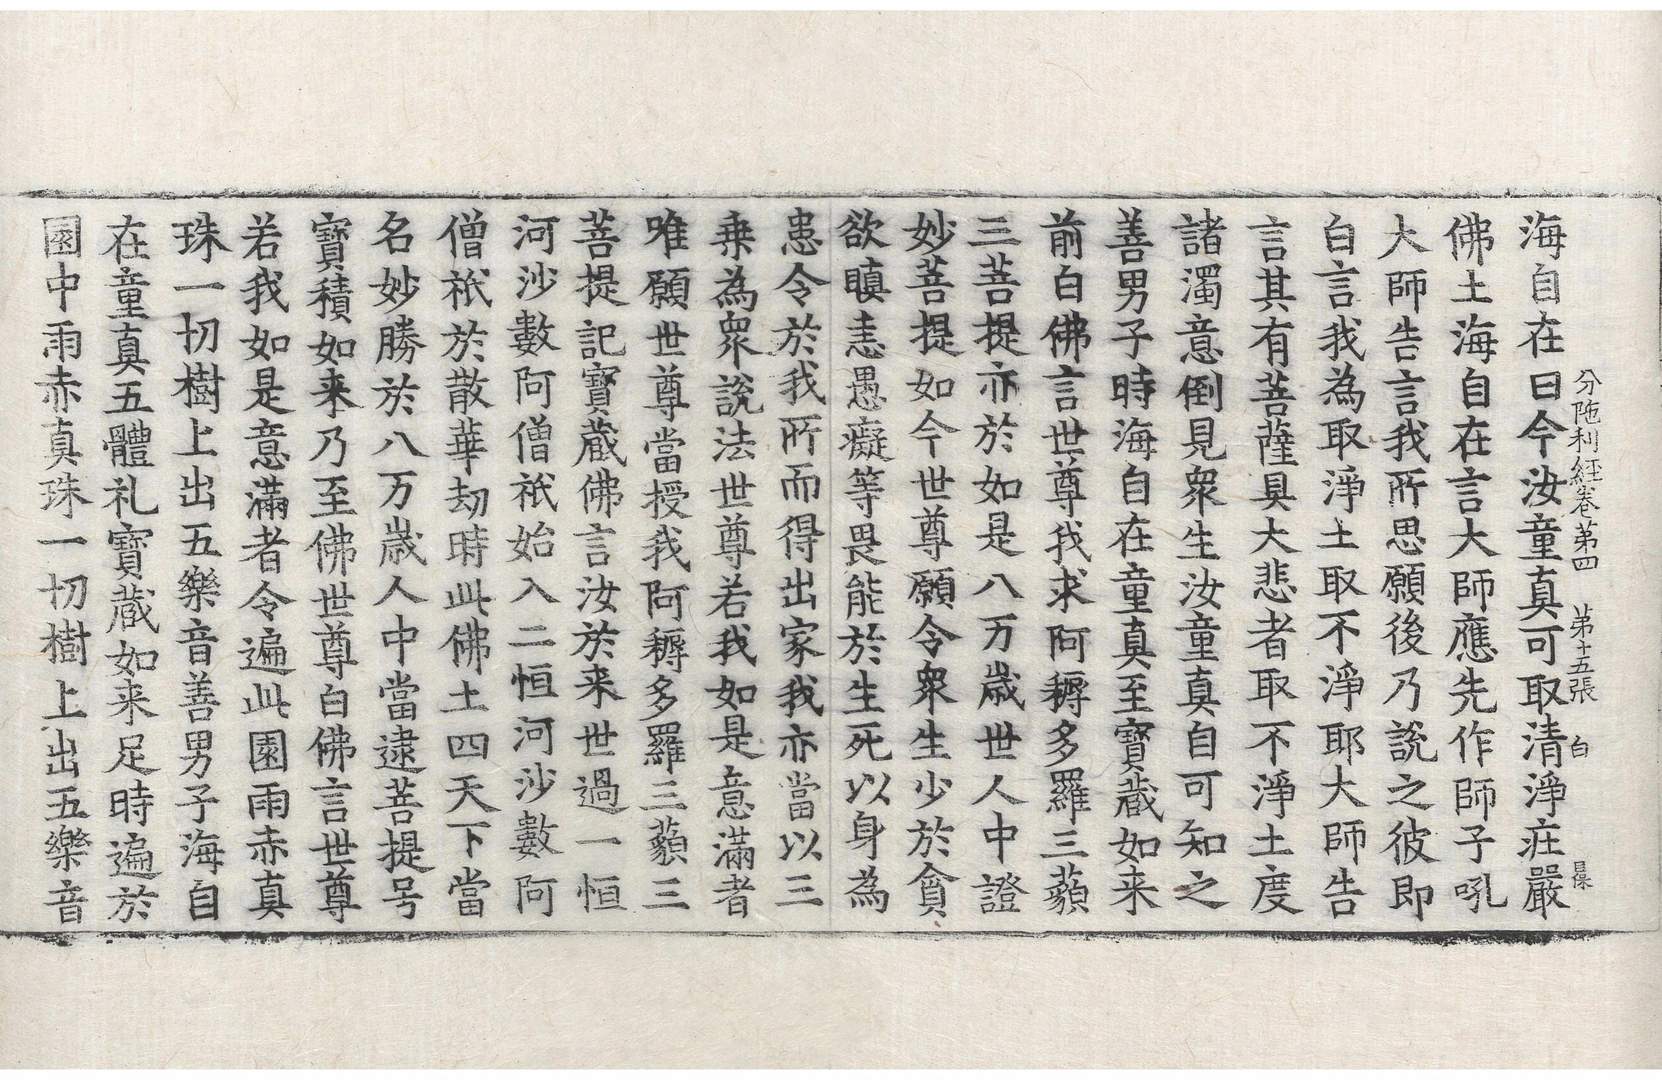 分陁利經卷第四　第十五張　白
海自在曰今汝童真可取清淨㽵嚴
佛土海自在言大師應先作師子吼
大師告言我所思願後乃說之彼即
白言我為取淨土取不淨耶大師告
言其有菩薩具大悲者取不淨土度
諸濁意倒見衆生汝童真自可知之
善男子時海自在童真至寶藏如来
前白佛言世尊我求阿耨多羅三藐
三菩提亦於如是八万歲世人中證
妙菩提如今世尊願令衆生少於貪
欲瞋恚愚癡等畏能於生死以身為
患令於我所而得出家我亦當以三
乗為衆說法世尊若我如是意滿者
唯願世尊當授我阿耨多羅三藐三
菩提記寶蔵佛言汝於来世過一恒
河沙數阿僧祇始入二恒河沙數阿
僧祇於散華劫時此佛土四天下當
名妙勝於八万歲人中當逮菩提号
寶積如来乃至佛世尊白佛言世尊
若我如是意滿者令遍此園雨赤真
珠一切樹上出五樂音善男子海自
在童真五體礼寶蔵如来足時遍於
園中雨赤真珠一切樹上出五樂音